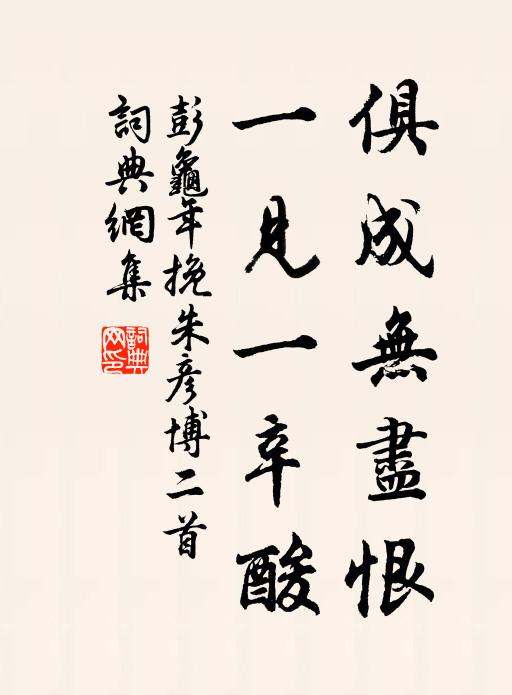 俱成無盡恨
一見一辛酸
彭龜年挽朱彥博二首
詞典網集
詞典網印